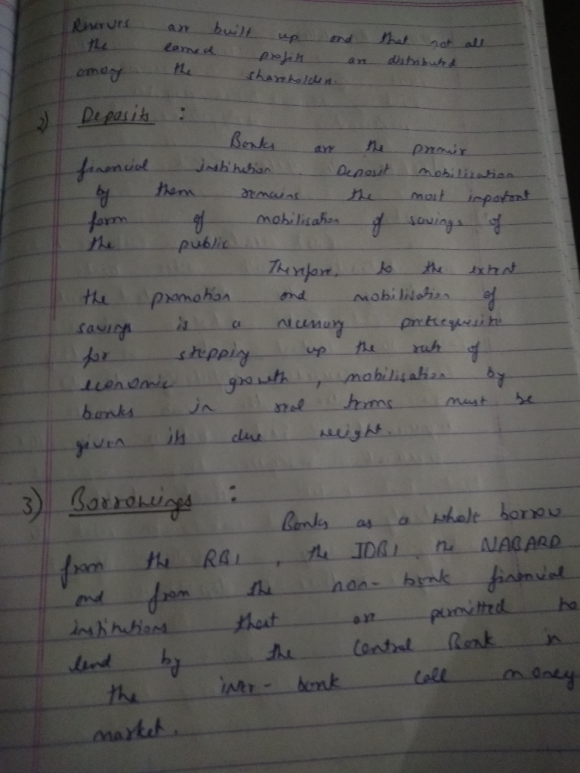 Reserves are built up and that not all
the earned profits are distributed
among the shareholders.
2) Deposits :
Banks are the premier
financial institution. Deposit mobilisation
by them remains the most important
form of mobilisation of savings of
the public
Therefore, to the extent
the promotion and mobilisation of
savings is a necessary prerequisite
for stepping up the rate of
economic growth, mobilisation by
banks in real terms must be
given its due weight.
3) Borrowings :
Banks as a whole borrow
from the RBI, the IDBI, the NABARD
and from the non-bank financial
institutions that are permitted to
lend by the Central Bank in
the inter-bank call money
market.